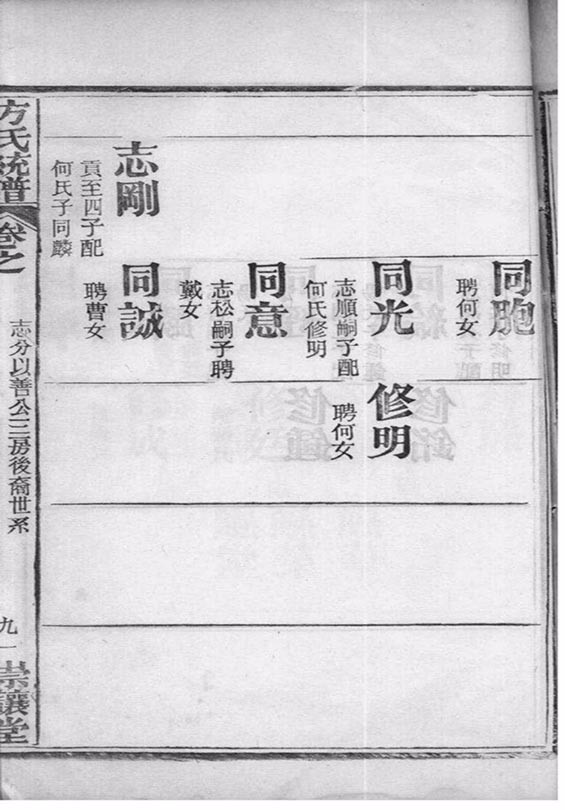 同胞
聘何女
同光
志順嗣子配
何氏修明
修明
聘何女
同意
志松嗣子聘
戴女
志剛
貢至四子配
何氏子同麟
同誠
聘曹女
方氏統譜
卷之
志分以善公三房後裔世系
九一
崇讓堂